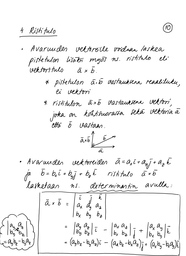 4. Ristitulo
10
• Avaruuden vektoreille voidaan laskea
pistetulon lisäksi myös ns. ristitulo eli
vektoritulo a̅ × b̅.
* pistetulon a̅·b̅ vastauksena reaaliluku,
ei vektori
* ristitulon a̅×b̅ vastauksena vektori,
joka on kohtisuorassa sekä vektoria a̅
että b̅ vastaan.
a̅×b̅
b̅
a̅
• Avaruuden vektoreiden a̅ = a₁i̅ + a₂j̅ + a₃k̅
ja b̅ = b₁i̅ + b₂j̅ + b₃k̅ ristitulo a̅×b̅
lasketaan ns. determinantin avulla:
a̅ × b̅ = | i̅ j̅ k̅ |
| a₁ a₂ a₃ |
| b₁ b₂ b₃ |